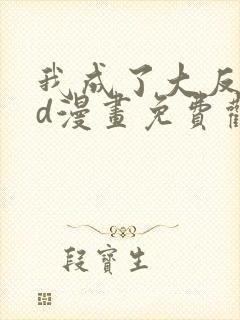 我成了大反
d漫畫免費
段寶生